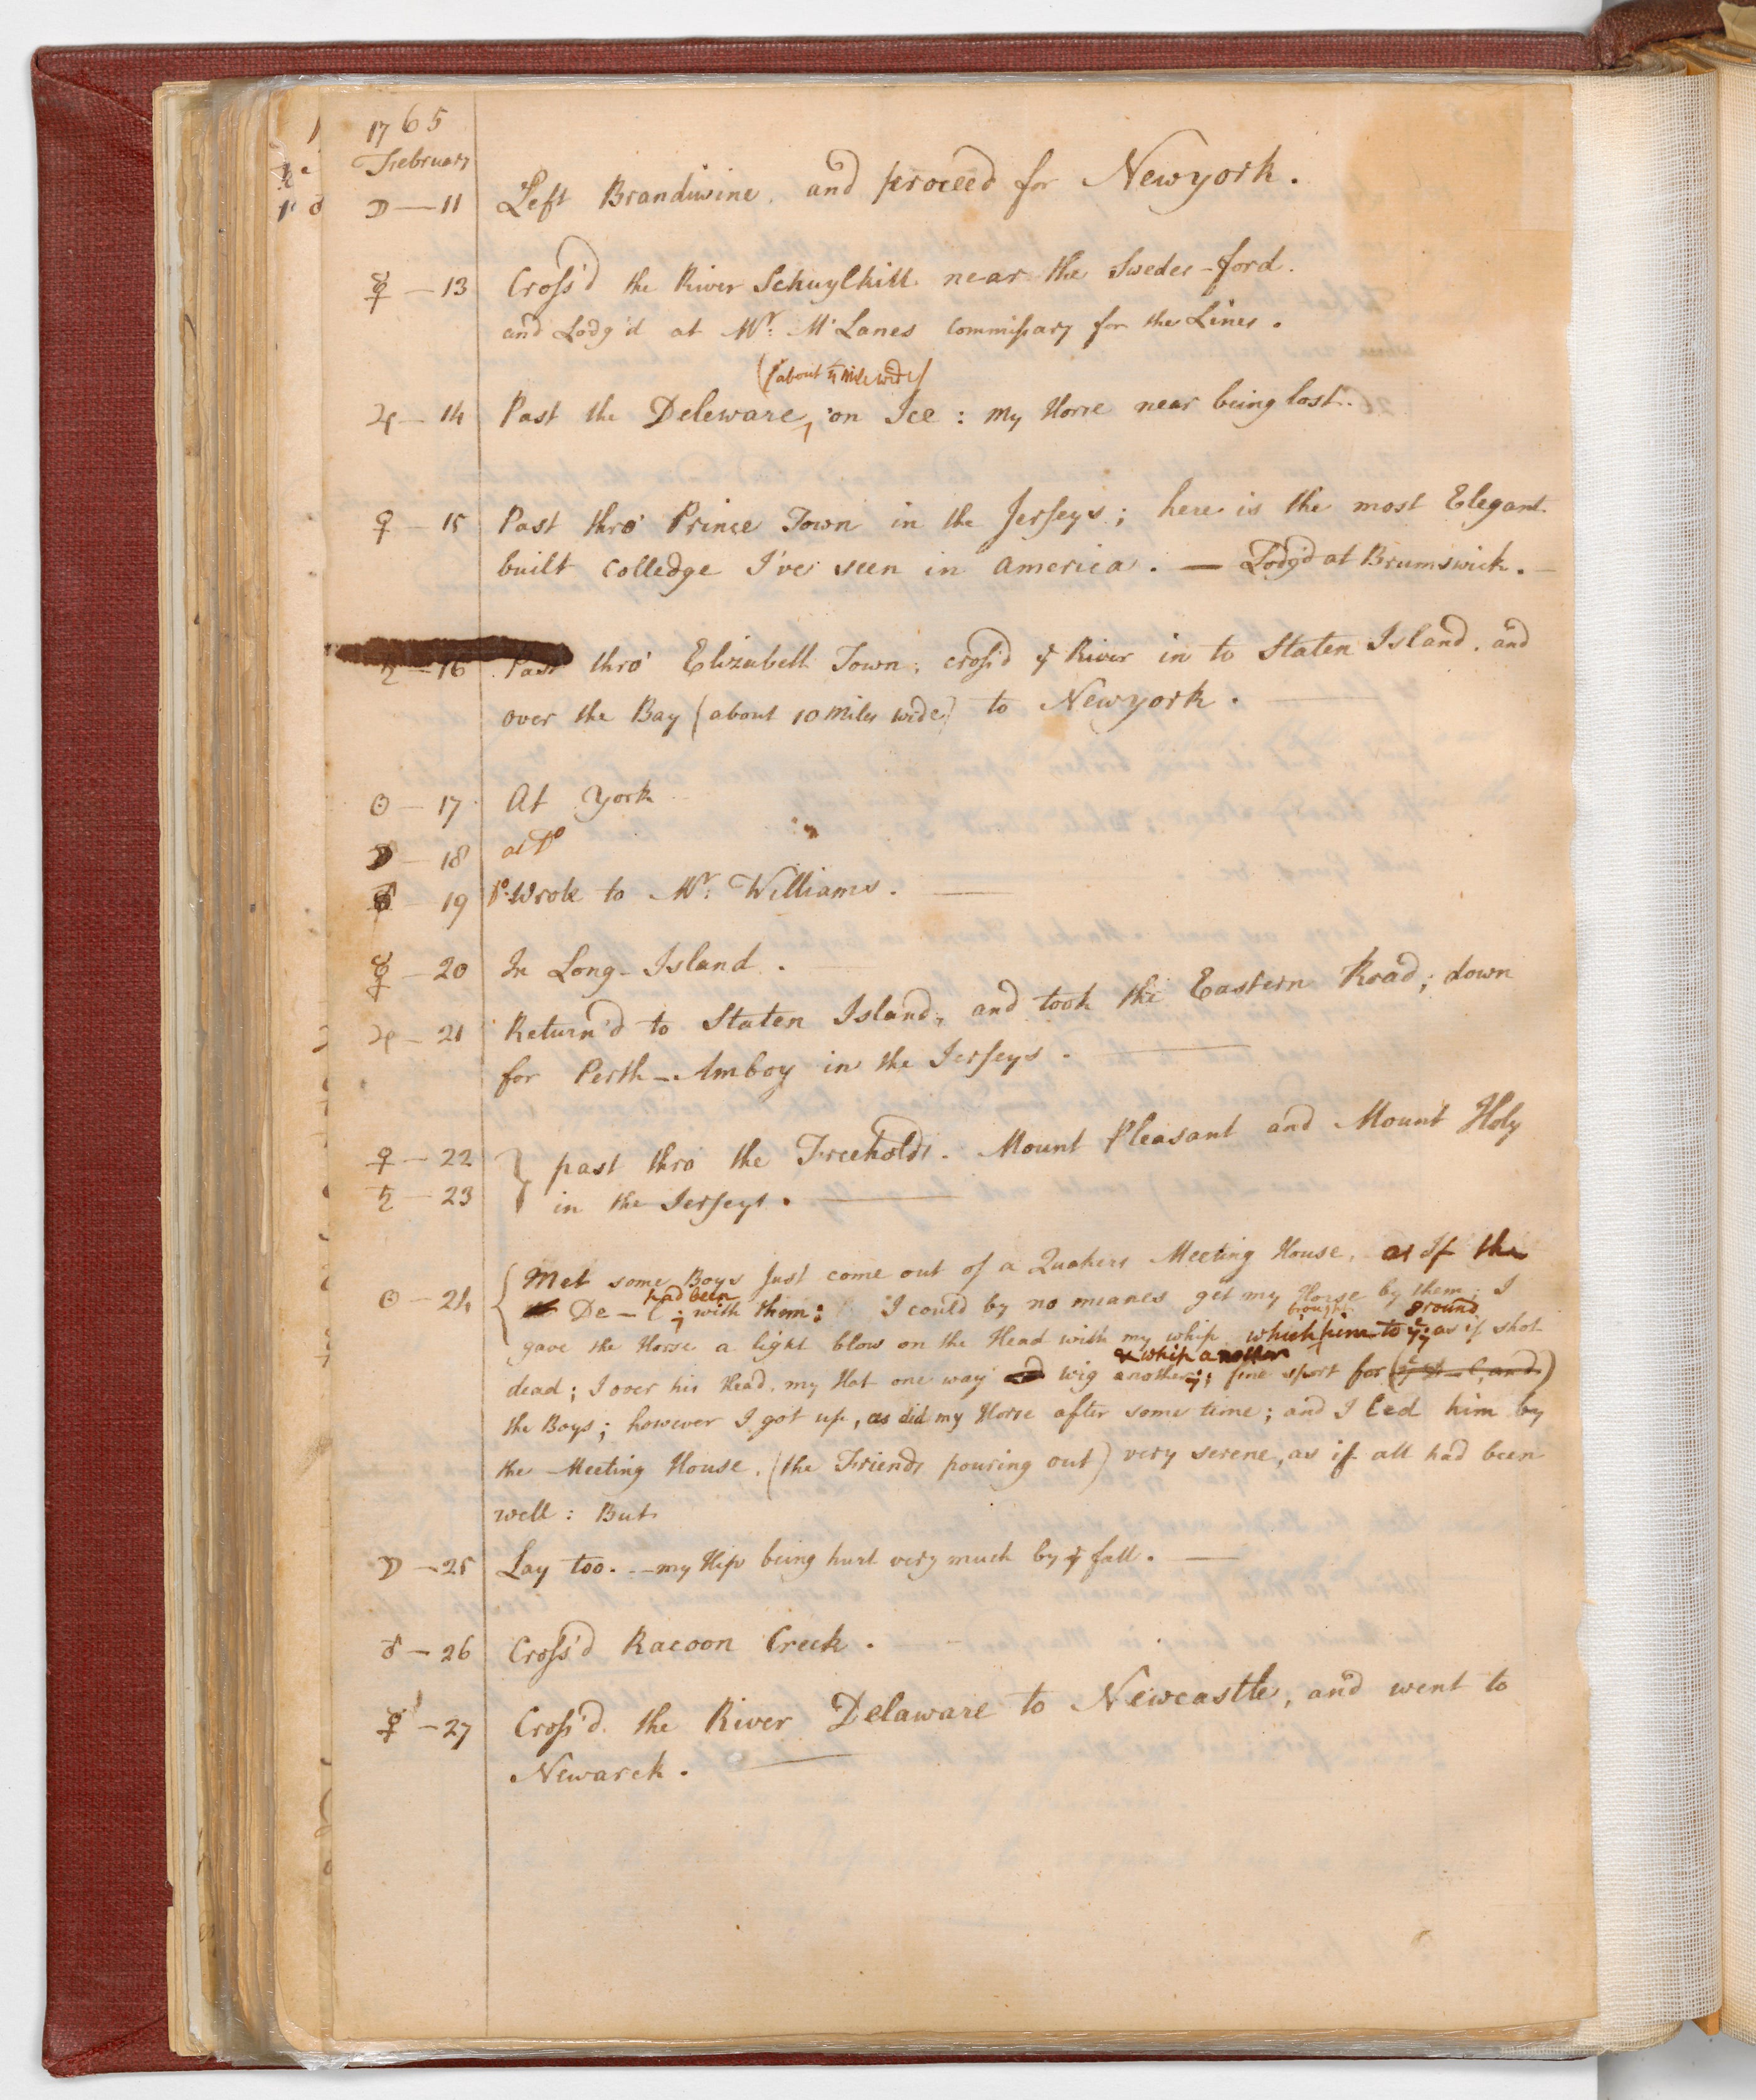 1765
February
☽ — 11 Left Brandiwine, and proceed for Newyork.
☿ — 13 Cross'd the River Schuylkill near the Swedes-ford.
and Lodg'd at Mr: Mc Lanes Commissary for the Lines.
(about ¼ Mile wide)
♃ — 14 Past the Deleware, on Ice: my Horse near being lost.
♀ — 15 Past thro' Prince Town in the Jerseys; here is the most Elegant
built Colledge I've seen in America. — Lodg'd at Brumswick. —
♄ — 16 Past thro' Elizabeth Town, cross'd ye River in to Staten Island, and
over the Bay (about 10 Miles wide) to Newyork. —
☉ — 17 At York
☽ — 18 at Do
♂ — 19 Do. Wrote to Mr: Williams. —
☿ — 20 In Long-Island.
♃ — 21 Return'd to Staten Island, and took the Eastern Road; down
for Perth-Amboy in the Jerseys. —
♀ — 22 } past thro the Freeholds. Mount Pleasant and Mount Holy
♄ — 23 in the Jerseys. —
☉ — 24 { Met some Boys Just come out of a Quakers Meeting House, as If the
had been
De–l; with them: I could by no means get my Horse by them; I
brought ground
gave the Horse a light blow on the Head with my whip which him to ye as if shot
& whip another
dead; I over his Head, my Hat one way wig another; fine sport for (ye D–l, and)
the Boys; however I got up, as did my Horse after some time; and I Led him by
the Meeting House, (the Friends pouring out) very serene, as if all had been
well: But
☽ — 25 Lay too. — my Hip being hurt very much by ye fall. —
♂ — 26 Cross'd Racoon Creek.
☿ — 27 Cross'd the River Delaware to Newcastle, and went to
Newarck. —